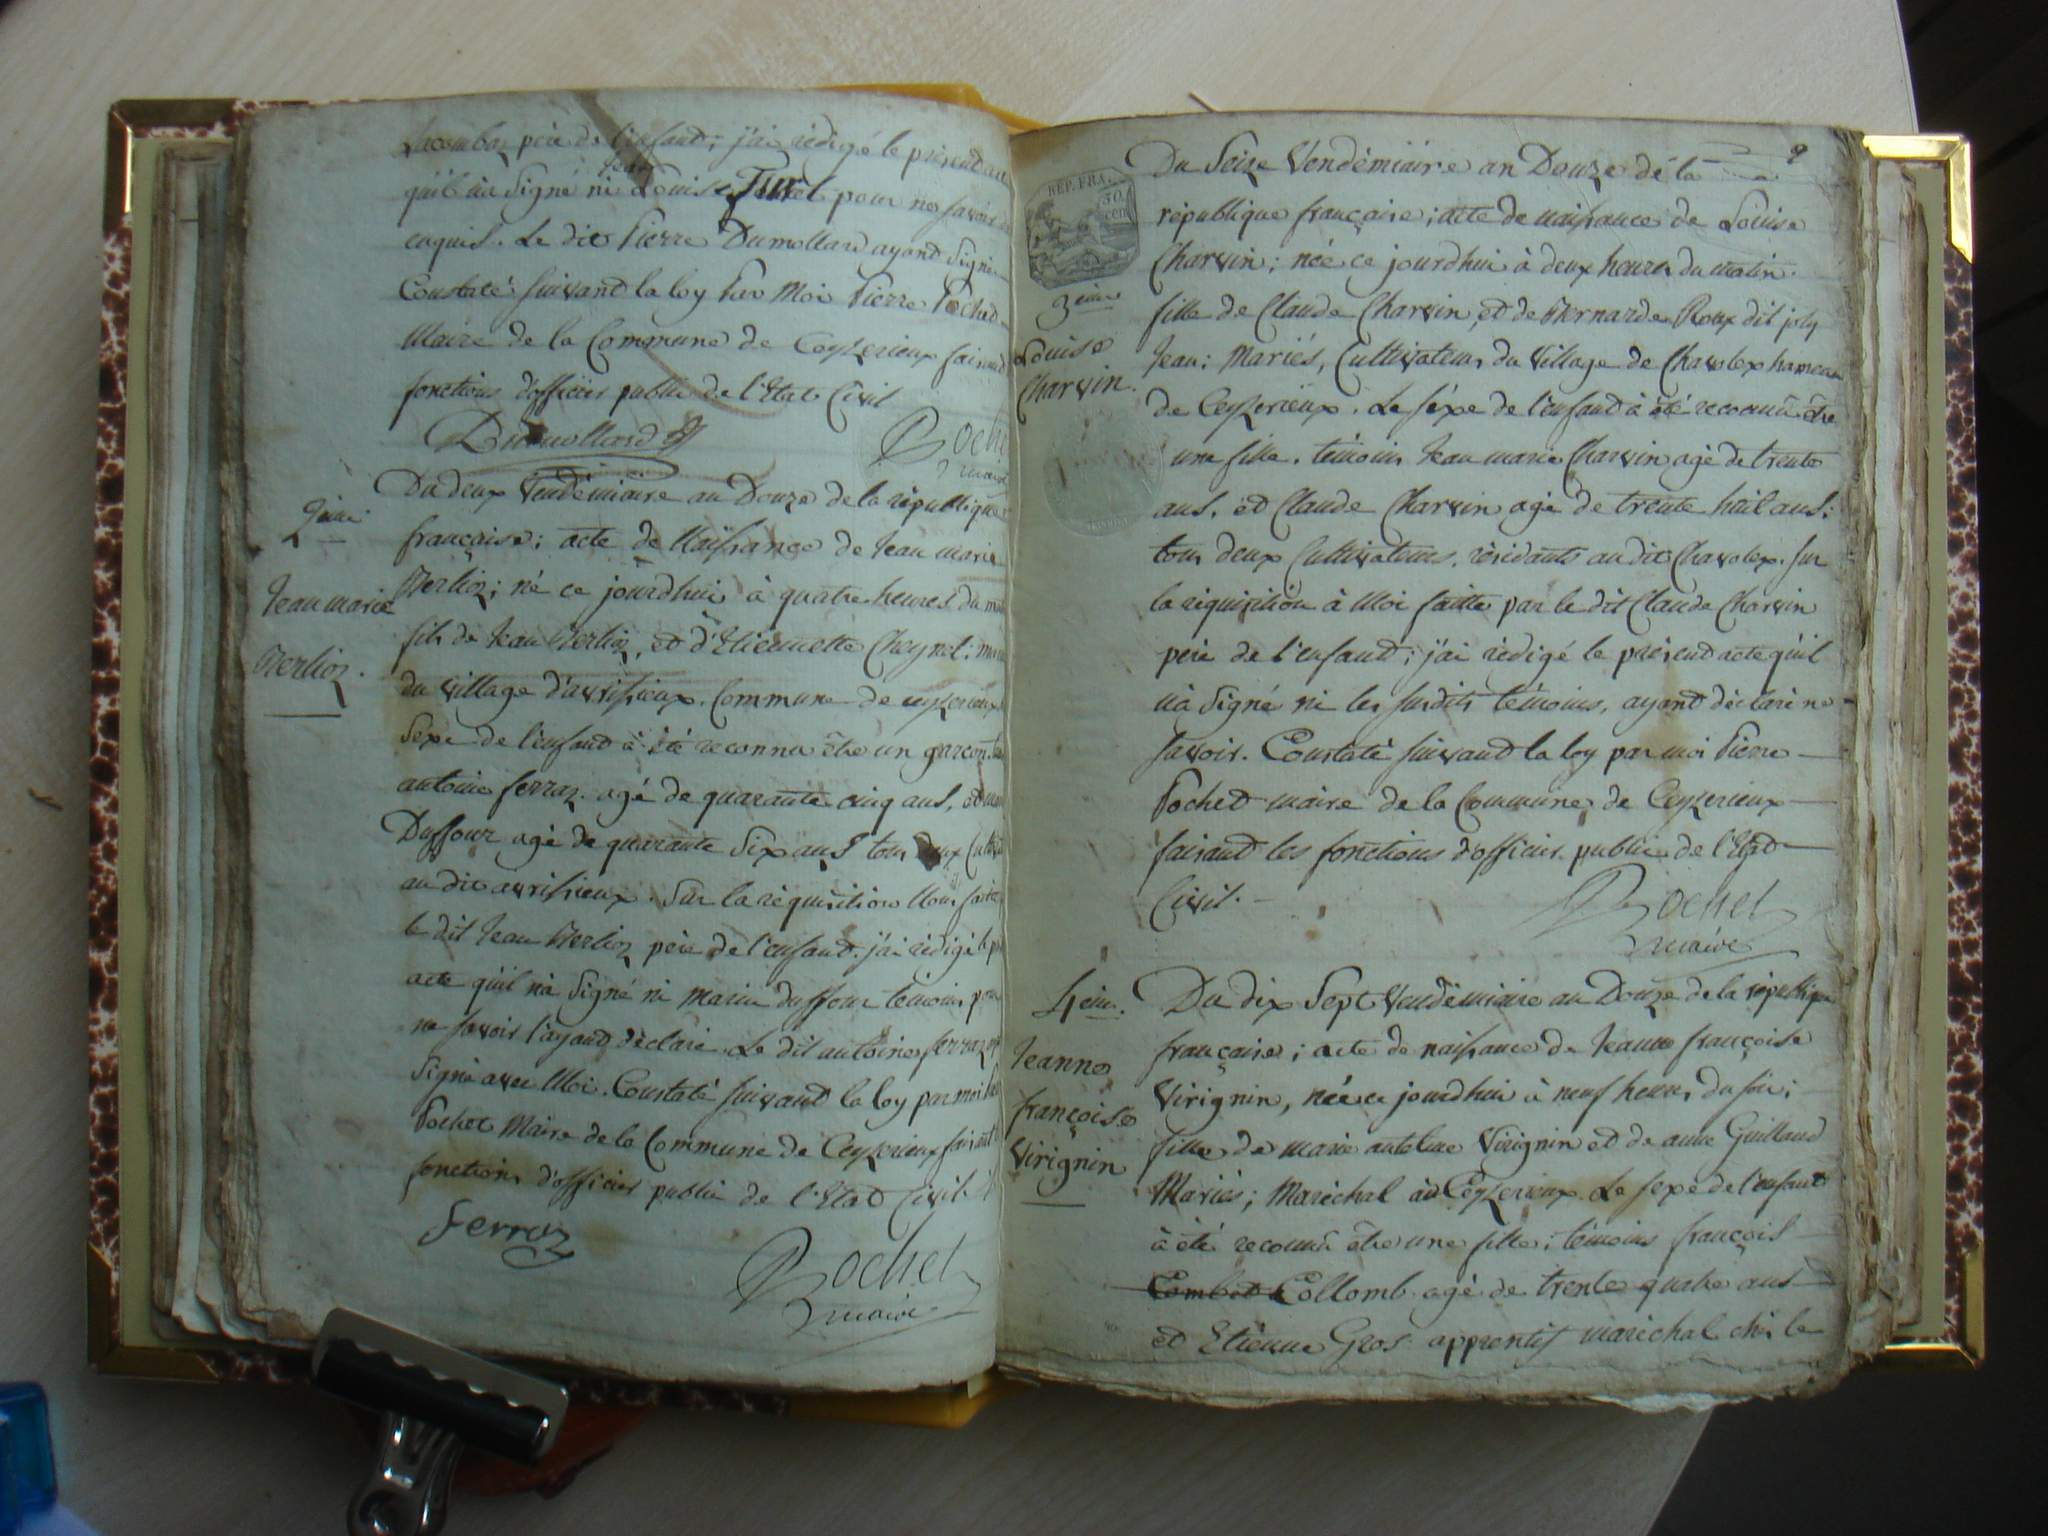 Lacombaz père de l'enfant; j'ai rédigé le présent acte
qu'il n'a signé ni Louise Jean pour ne savoir de
enquis. Le dit Pierre Dumollard ayant signé
Constaté suivant la loy par Moi Pierre Pochet
Maire de la Commune de Ceyzerieux faisant
fonctions d'officier public de l'Etat Civil
Dumollard
Pochet
maire
Du deux Vendémiaire an Douze de la république
2eme
française; acte de Naissance de Jean marie
Jean marie
Berlioz; né ce jourdhui à quatre heures du
fils de Jean Berlioz, et d'Etiennette Cheynel:
Berlioz.
du village d'avrissieux. Commune de ceyzerieux
Sexe de l'enfant à été reconnu être un garçon.
antoine ferraz. agé de quarante cinq ans, et
Duffour agé de quarante Six ans tous deux
au dit avrissieux. Sur la réquisition Nous faite
le dit Jean Berlioz père de l'enfant. j'ai rédigé le
acte qu'il n'a Signé ni marin duffour témoins pour
ne savoir l'ayant déclaré. Le dit antoine ferraz
Signé avec Moi. Constaté suivant la loy par moi
Pochet Maire de la Commune de Ceyzerieux faisant
fonctions d'officier public de l'Etat Civil.
Ferraz
Pochet
maire
9
Du Seize Vendémiaire an Douze de la
REP. FRA.
30
cen
république française; acte de naissance de Louise
Charvin; née ce jourdhui à deux heures du matin.
3eme
fille de Claude Charvin, et de Bernarde Roux dit joly
Louise
Jean: Mariés, Cultivateurs du Village de Chavolex hameau
Charvin.
de Ceyzerieux. Le séxe de l'enfant à été reconnu être
une fille. témoins Jean marie Charvin agé de trente
ans, et Claude Charvin agé de trente huit ans:
tous deux Cultivateurs. résidants au dit Chavolex. Sur
la réquisition à Moi faitte par le dit Claude Charvin
père de l'enfant; j'ai rédigé le présent acte qu'il
n'a Signé ni les susdits témoins, ayant déclaré ne
savoir. Constaté suivant la loy par moi Pierre
Pochet maire de la Commune de Ceyzerieux
faisant les fonctions d'officier public de l'Etat
Civil.
Pochet
maire
4eme.
Du dix Sept Vendémiaire an Douze de la république
Jeanne
française; acte de naissance de Jeanne françoise
françoise
Virignin, née ce jourdhui à neuf heures du soir;
Virignin
fille de marie antelme Virignin et de anne Guilland
Mariés; Maréchal à Ceyzerieux. Le sexe de l'enfant
à été reconnu être une fille; témoins françois
Combet Collomb agé de trente quatre ans
et Etienne Gros apprentif maréchal chès le